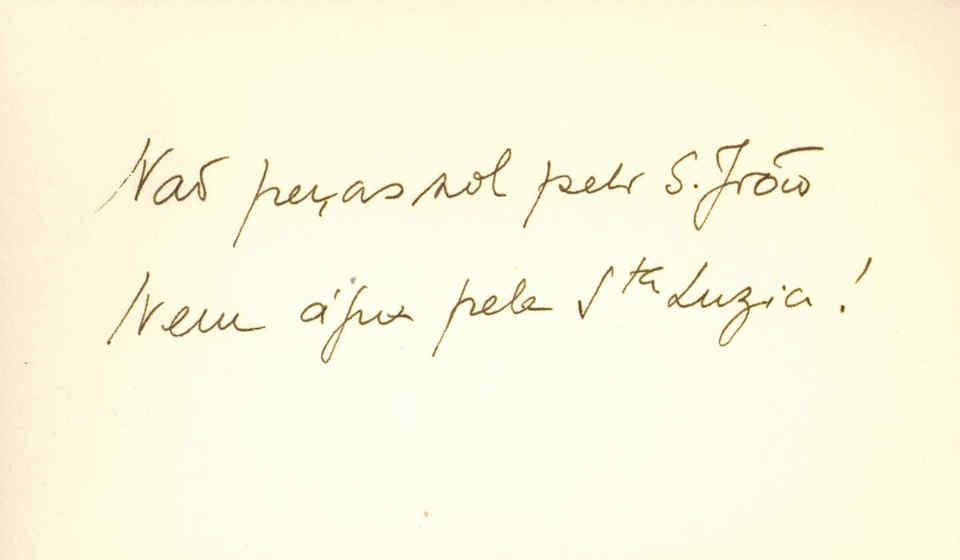 Não peças sol pelo S. João
Nem água pela Sta Luzia!